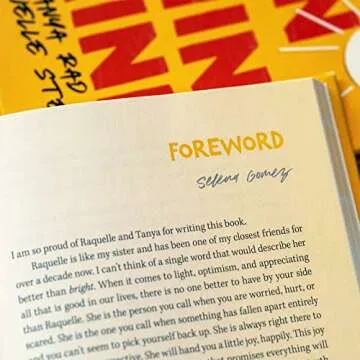 ANNA RAD
ELLE STE
IN
IN
IN
FOREWORD
Selena Gomez
I am so proud of Raquelle and Tanya for writing this book.
Raquelle is like my sister and has been one of my closest friends for
over a decade now. I can't think of a single word that would describe her
better than bright. When it comes to light, optimism, and appreciating
all that is good in our lives, there is no one better to have by your side
than Raquelle. She is the person you call when you are worried, hurt, or
scared. She is the one you call when something has fallen apart entirely
and you can't seem to pick yourself back up. She is always right there to
She will hand you a little joy, happily. This joy
promises everything will